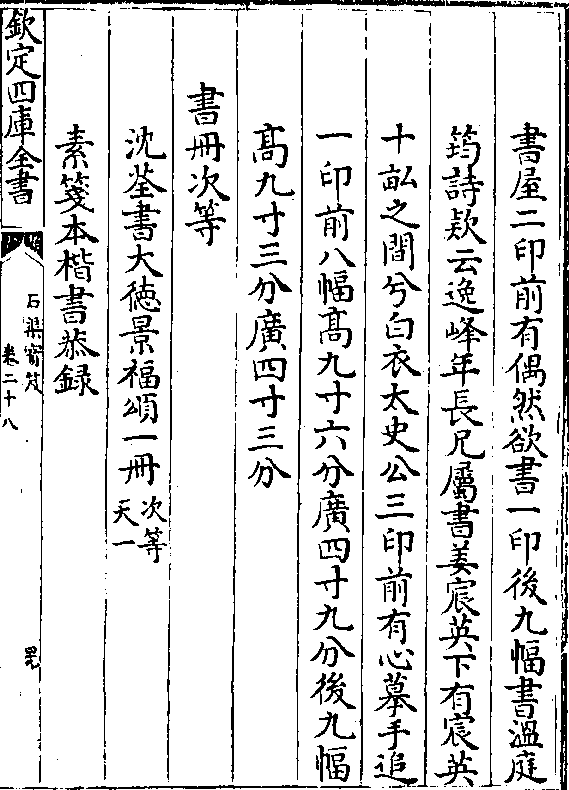 書屋二印前有偶然欲書一印後九幅書溫庭
筠詩欵云逸峰年長兄屬書姜宸英下有宸英
十畝之間兮白衣太史公三印前有心摹手追
一印前八幅髙九寸六分廣四寸九分後九幅
髙九寸三分廣四寸三分
書冊次等
沈荃書大德景福頌一冊次等天一
素箋本楷書恭録
欽定四庫全書
石渠寳笈
卷二十八